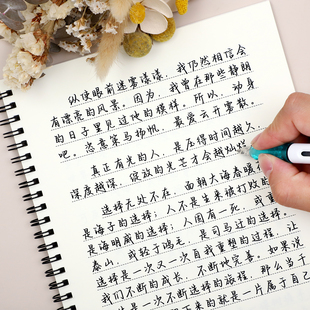 纵使眼前迷雾漾漾，我仍然相信会
有漂亮的风景。因为，我曾在那些静朗
的日子里见过他的模样。所以，动身
吧。恣意策马扬帆，最爱云开雾散。
真正有光的人，是压得时间越久，
深度越深，绽放的光芒才会越灿烂
选择无处不在。面朝大海春暖
是海子的选择；人不是生来被打败的
是海明威的选择；人固有一死，或重
泰山，或轻于鸿毛，是司马迁的选择。
选择是一次又一次自我重塑的过程，让
我们不断的成长，不断地完善。如果说
是一次不断选择的旅程，那么当千
下来的就是一片属于自己